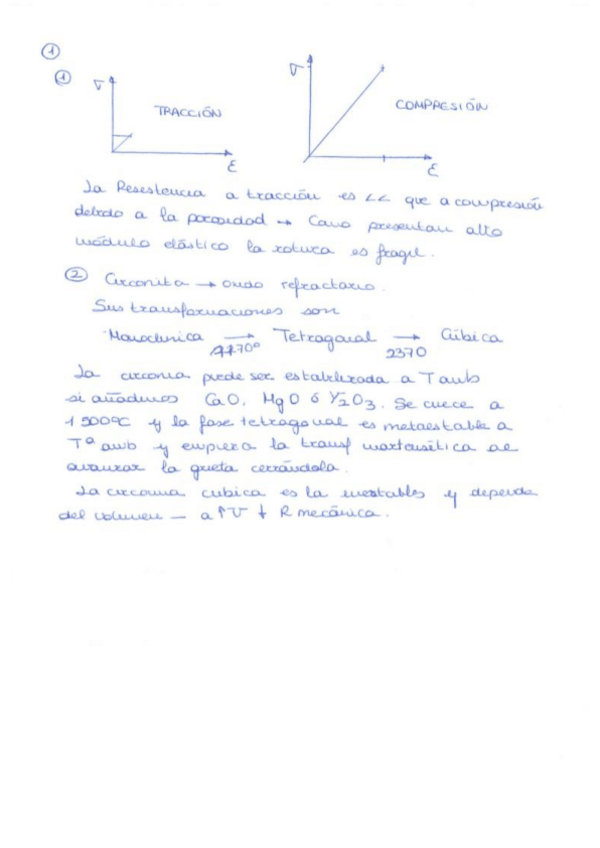 ①
① σ TRACCIÓN ε
σ COMPRESIÓN ε
La Resestencia a tracción es << que a compresión
debido a la porosidad → Como presentan alto
módulo elástico la rotura es fragil.
② Circonita → oxido refractario.
Sus transformaciones son
Monoclinica → Tetragonal → Cúbica
1170° 2370
La circonia puede ser estabilizada a T amb
si añadimos CaO, MgO ó Y2O3. Se cuece a
1500ºC y la fase tetragonal es metaestable a
Tª amb y empieza la transf martensítica al
avanzar la grieta cerrándola.
La circonia cubica es la inestables y depende
del volumen — a ↑V ↓ R mecánica.